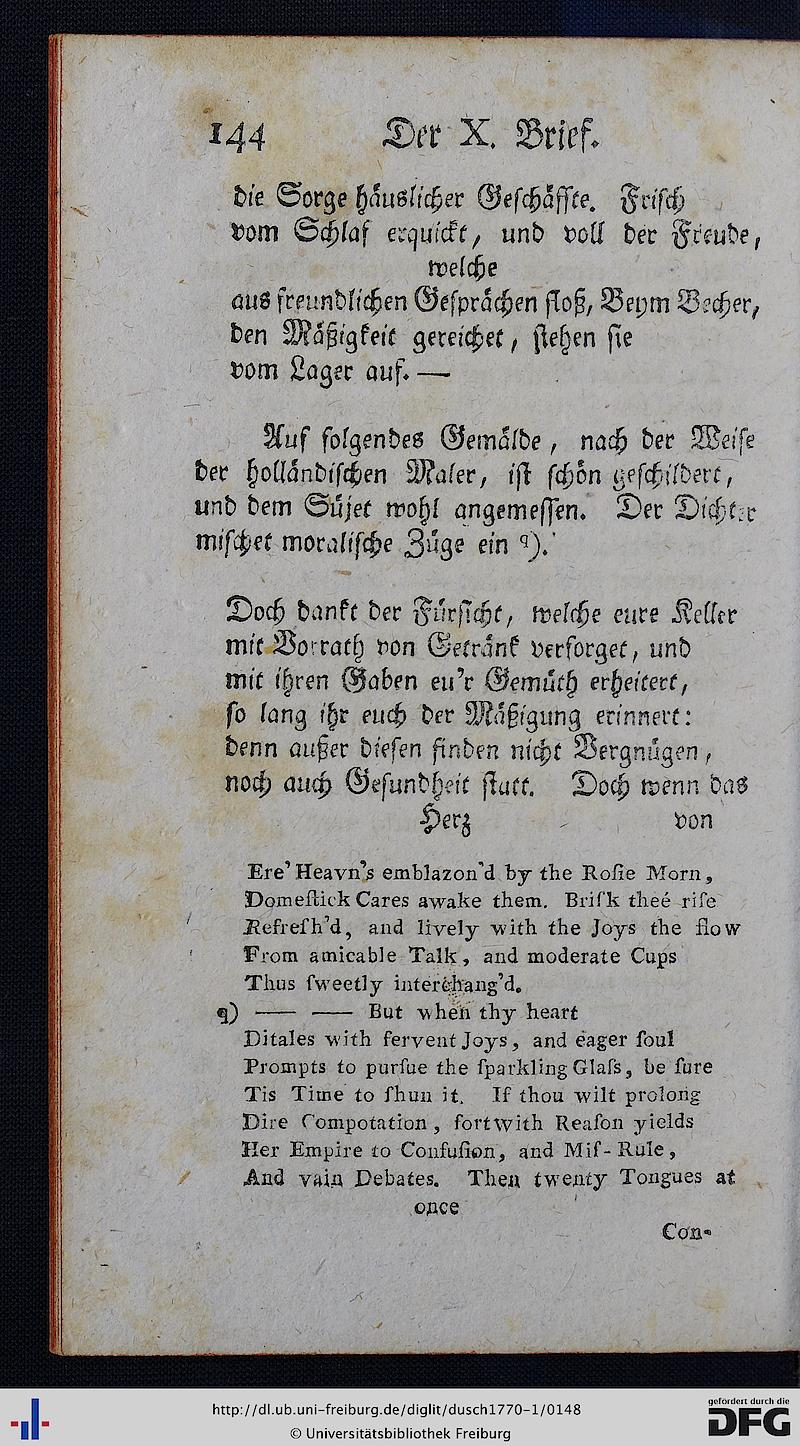 144 Der X. Brief.
die Sorge häuslicher Geschäffte. Frisch
vom Schlaf erquickt, und voll der Freude,
welche
aus freundlichen Gesprächen floß, Beym Becher,
den Mäßigkeit gereichet, stehen sie
vom Lager auf. —
Auf folgendes Gemälde, nach der Weise
der holländischen Maler, ist schön geschildert,
und dem Süjet wohl angemessen. Der Dichter
mischet moralische Züge ein q).
Doch dankt der Fürsicht, welche eure Keller
mit Vorrath von Getränk versorget, und
mit ihren Gaben eu'r Gemüth erheitert,
so lang ihr euch der Mäßigung erinnert:
denn außer diesen finden nicht Vergnügen,
noch auch Gesundheit statt. Doch wenn das
Herz von
Ere' Heavn's emblazon'd by the Roſie Morn,
Domeſtick Cares awake them. Briſk theé riſe
Refreſh'd, and lively with the Joys the flow
From amicable Talk, and moderate Cups
Thus ſweetly interchang'd.
q) —— —— But when thy heart
Ditales with fervent Joys, and eager ſoul
Prompts to purſue the ſparkling Glaſs, be ſure
Tis Time to ſhun it. If thou wilt prolong
Dire Compotation, fortwith Reaſon yields
Her Empire to Confuſion, and Miſ-Rule,
And vain Debates. Then twenty Tongues at
once
Con-
http://dl.ub.uni-freiburg.de/diglit/dusch1770-1/0148
© Universitätsbibliothek Freiburg
gefördert durch die
DFG